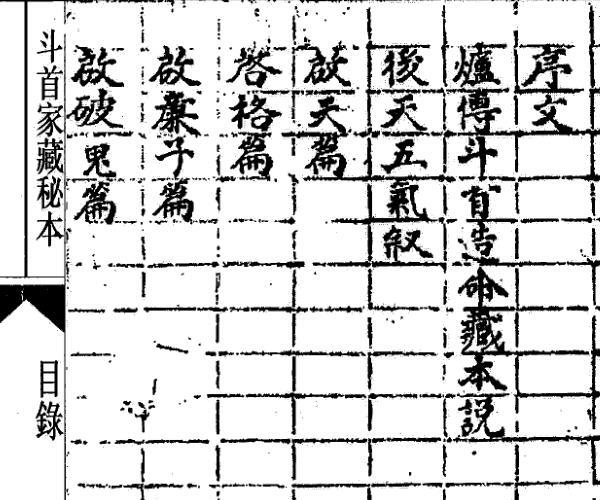 序文
爐傳斗首造命藏本説
後天五氣叙
啟天篇
啓格篇
啟廉子篇
啟破鬼篇
斗首家藏秘本
目錄